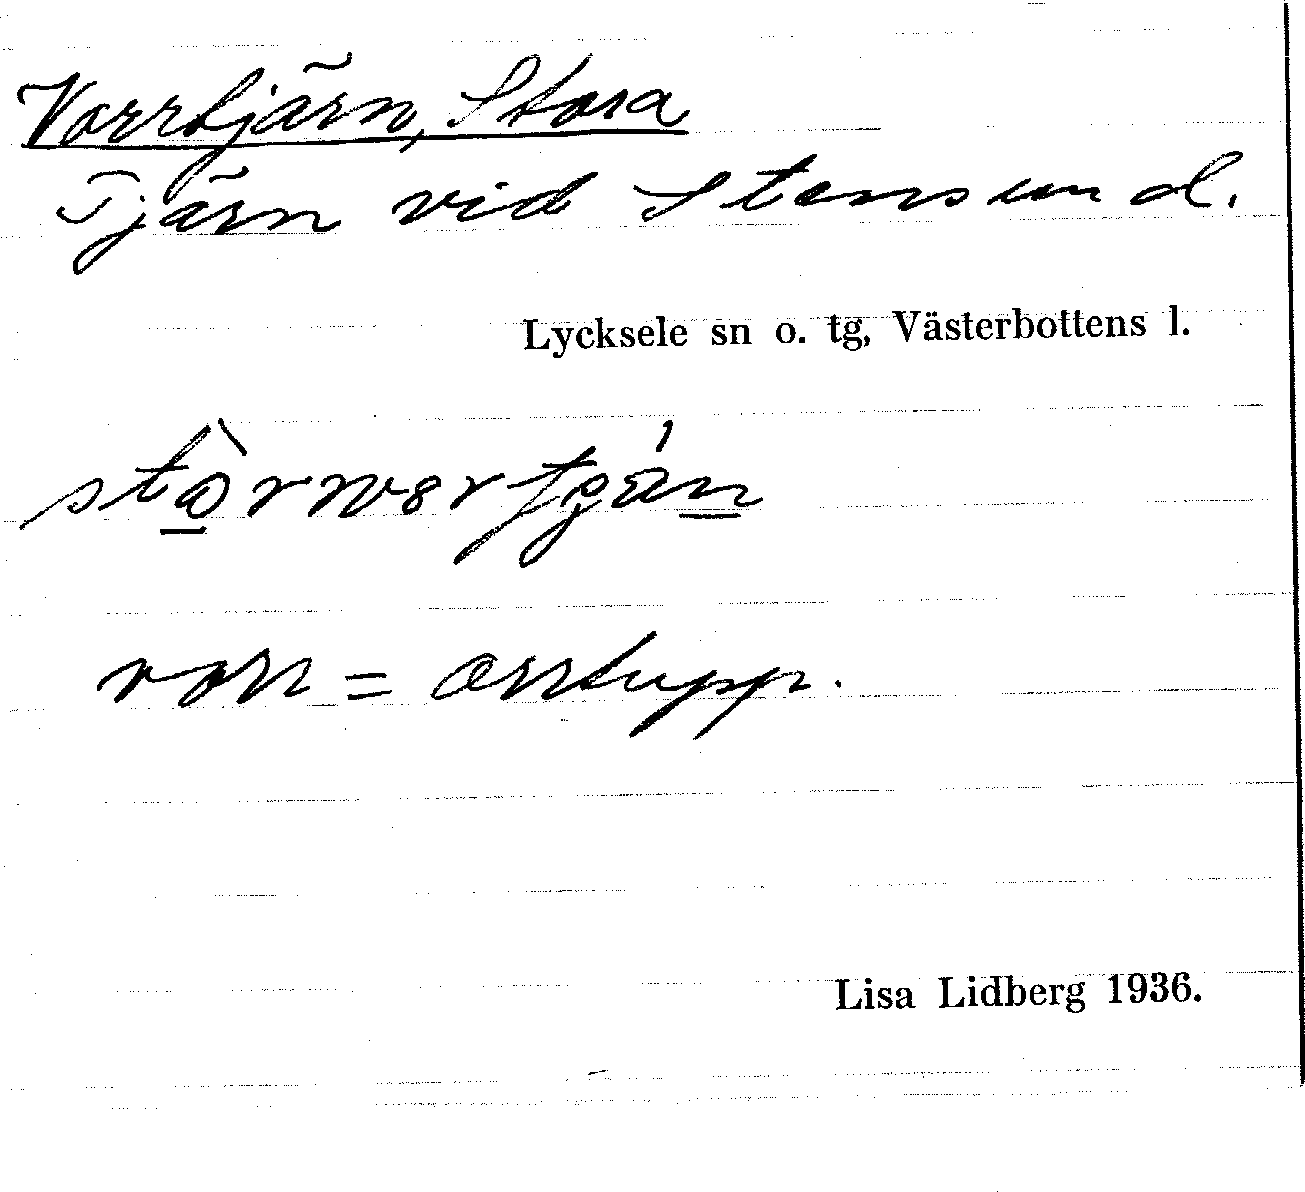 Vorrtjärn, Stora
Tjärn vid Stensund.
Lycksele sn o. tg, Västerbottens l.
vorr = orrtupp.
Lisa Lidberg 1936.